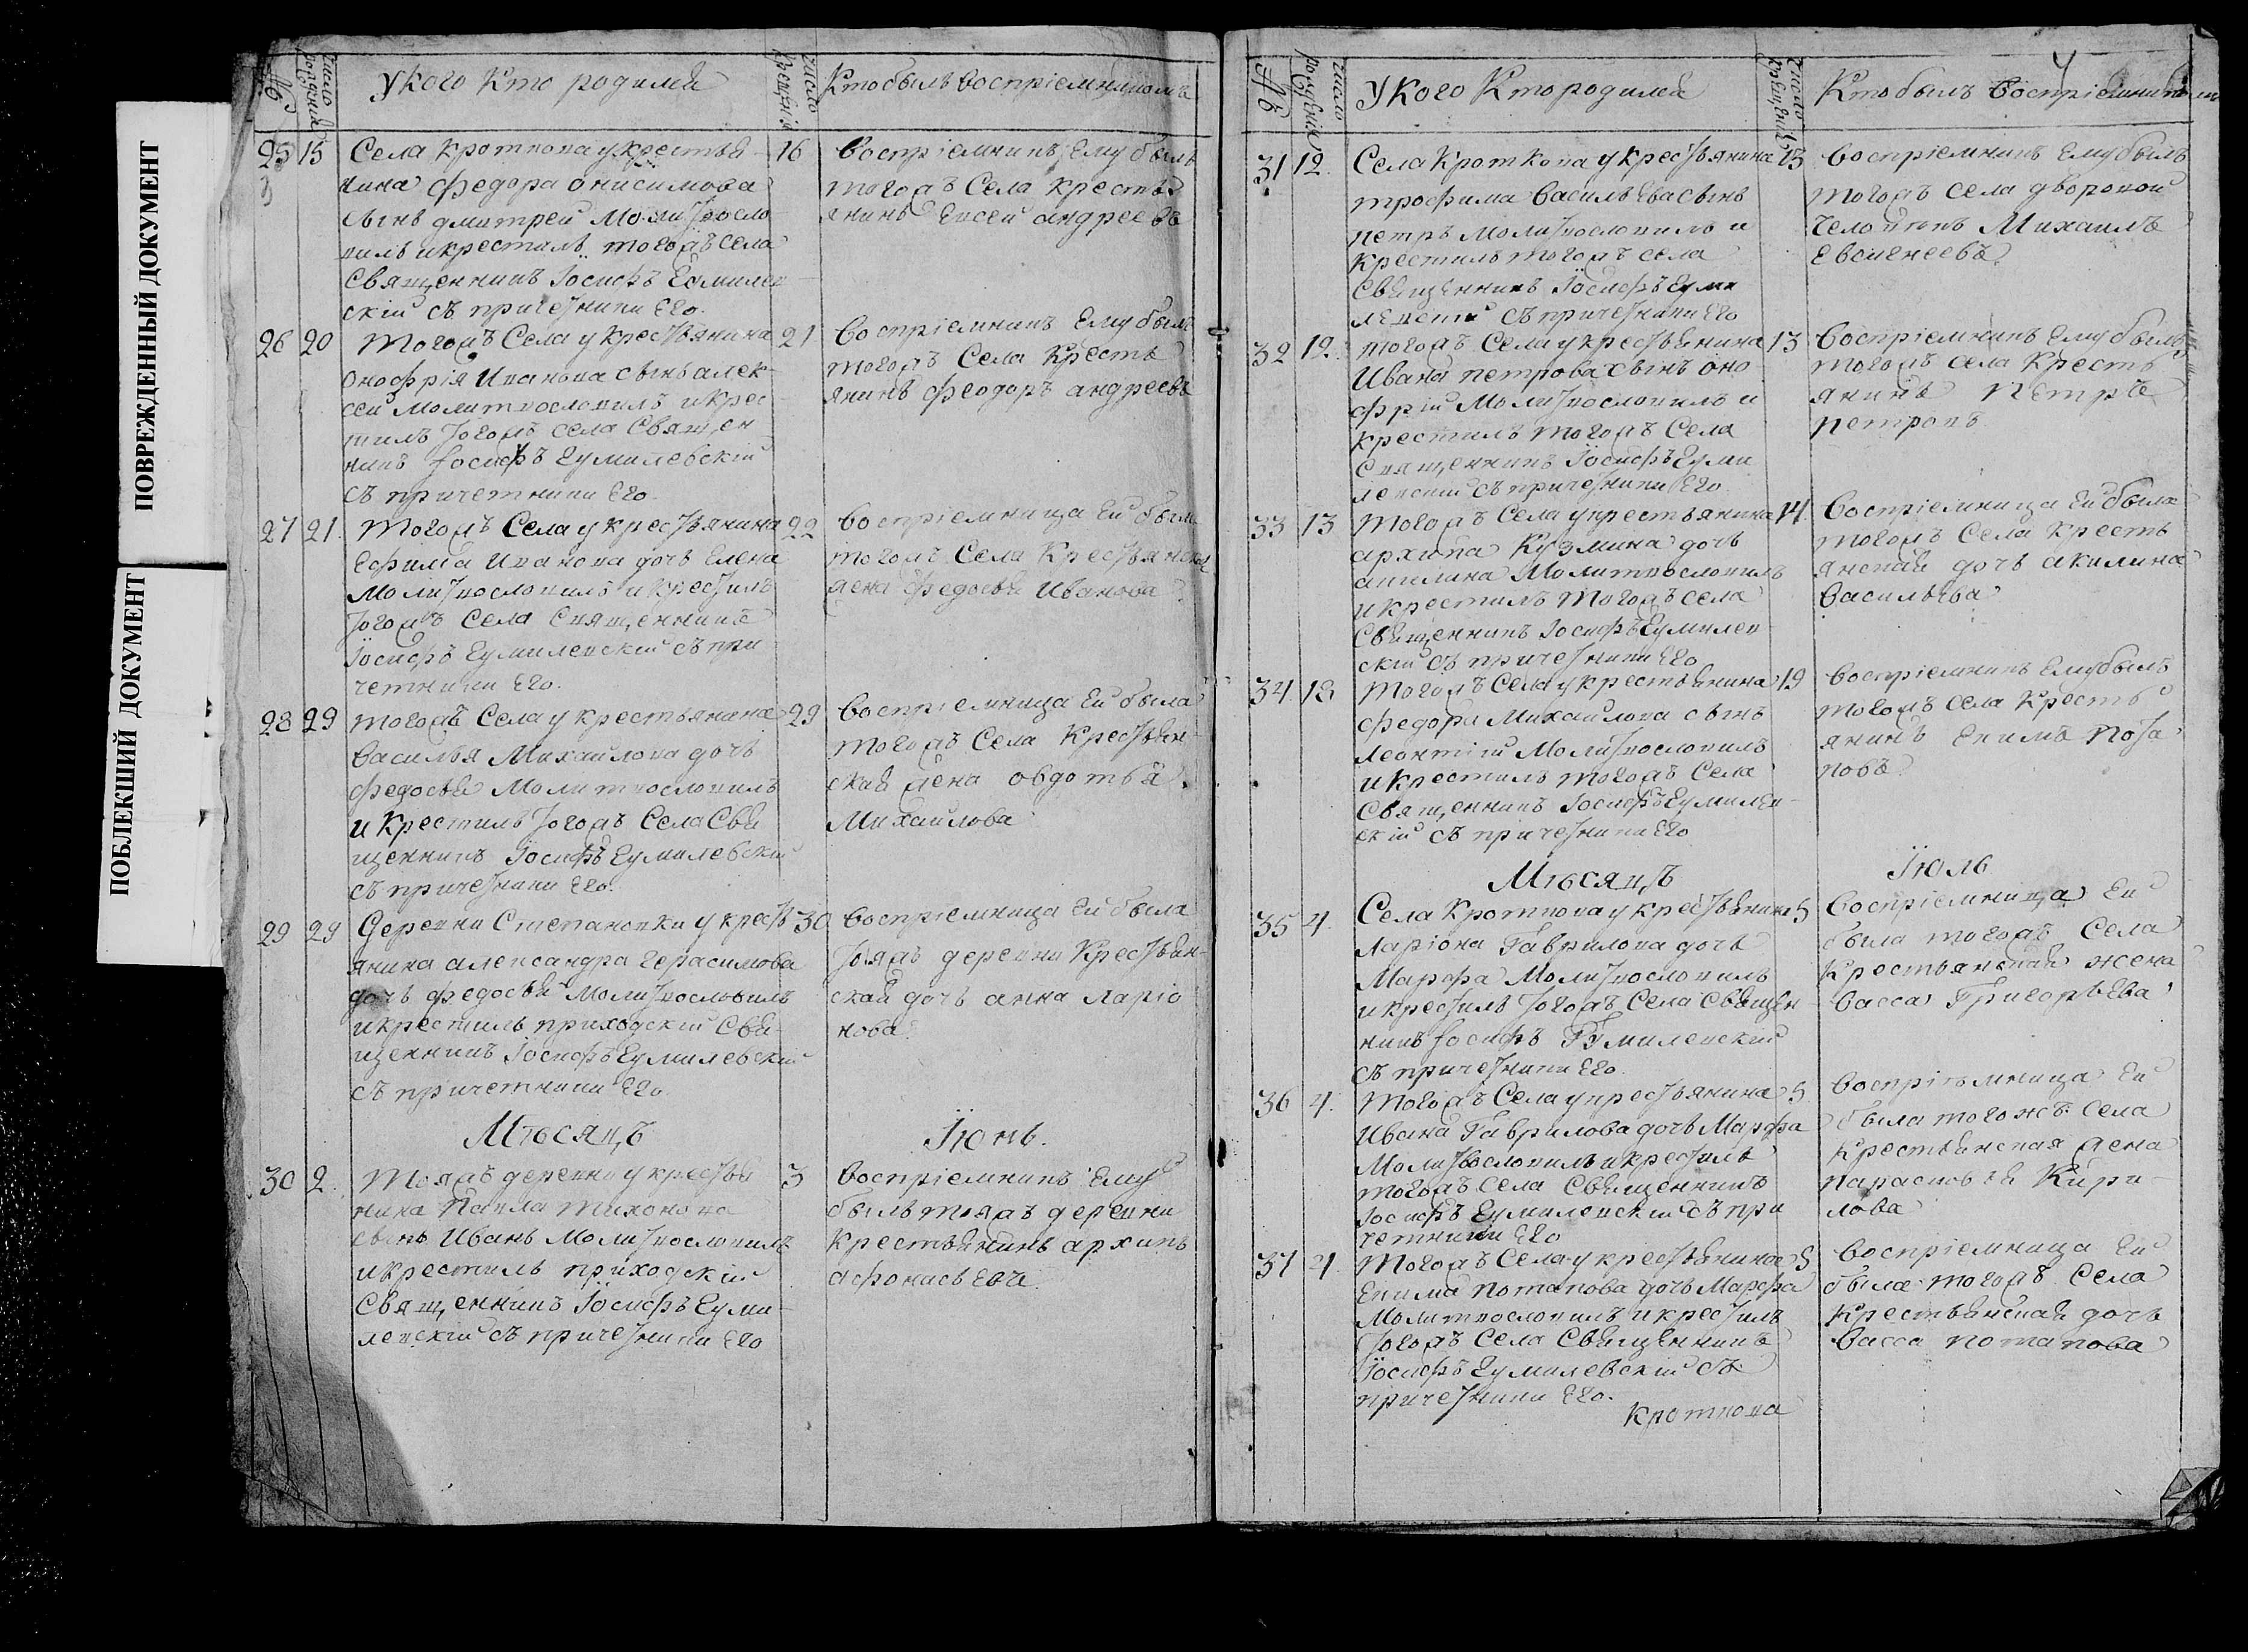 ПОВРЕЖДЕННЫЙ ДОКУМЕНТ
ПОБЛЕКШИЙ ДОКУМЕНТ
№
число рождения
У кого Кто родился
число крещения
Кто былъ Воспріемникомъ
25 15 Села Кроткова у крестья-
нина федора онисимова
сынъ дмитрей Молитвосло-
вилъ и крестилъ тогожъ села
Священникъ Іосифъ Еумилев-
скій съ причетники Его.
16 Воспріемникъ Ему былъ
тогожъ Села крестья-
янинъ Евсей андреевъ
26 20 Тогожъ Села у крестьянина
Онофрія Иванова сынъ алек-
сей Молитвословилъ и крес-
тилъ тогожъ села Священ
никъ Іосифъ Еумилевскій
съ причетники Его.
21 Воспріемникъ Ему былъ
тогожъ Села Кресть
янинъ феодоръ андреевъ
27 21. Тогожъ Села у крестьянина
Ефима Иванова дочь Елена
Молитвословилъ и крестилъ
тогожъ Села Священникъ
Іосифъ Еумилевскій съ при
четники Его.
22 Воспріемница Ей была
тогожъ Села Крестьянская
жена федосья Иванова
28 29 тогожъ Села у крестьянина
Василья Михаилова дочь
федосья Молитвословилъ
и Крестилъ тогожъ Села Свя
щенникъ Іосифъ Еумилевскій
съ причетники Его.
29 Воспріемница Ей была
тогожъ Села Крестьян-
ская жена овдотья
Михаилова
29 29 Деревни Степановки у кресть
янина александра Герасимова
дочь федосья Молитвословилъ
и крестилъ приходскій Свя-
щенникъ Іосифъ Еумилевскій
съ причетники Его.
30 Воспріемница Ей была
тояжъ деревни Крестьян-
ская дочь анна Ларіо
нова
Мѣсяцъ Іюнь.
30 2. Тояжъ деревни у крестья
нина Павла Тихонова
сынъ Иванъ Молитвословилъ
и крестилъ приходскій
Священникъ Іосифъ Еуми-
левскій съ причетники Его
3 Воспріемникъ Ему
былъ тояжъ деревни
крестьянинъ архипъ
афонасьевъ
4
№
число рождения
У кого Кто родился
число крещения
Кто былъ Воспріемникомъ
31 12. Села Кроткова у крестьянина
трофима Васильева сынъ
петръ молитвословилъ и
крестилъ тогожъ села
Священникъ Іосифъ Еуми
левскій съ причетники Его
13 Воспріемникъ Ему былъ
тогожъ села дворовой
человекъ Михаилъ
Евсигнеевъ
32 12. тогожъ Села у крестьянина
Ивана петрова сынъ оно
фрій Молитвословилъ и
крестилъ тогожъ Села
Священникъ Іосифъ Еуми
левскій съ причетники Его
13 Воспріемникъ Ему былъ
тогожъ села Кресть
янинъ Петръ
петровъ
33 13 тогожъ Села у крестьянина
архипа Кузмина дочь
акилина Молитвословилъ
и крестилъ тогожъ села
Священникъ Іосифъ Еумилев
скій съ причетники Его
14. Воспріемница Ей была
тогожъ Села Кресть
янская дочь акилина
Васильева
34. 18 тогожъ Села у крестьянина
федора Михайлова сынъ
леонтій Молитвословилъ
и крестилъ тогожъ Села
Священникъ Іосифъ Еумилев-
скій съ причетники Его
19 Воспріемникъ Ему былъ
тогожъ села Кресть
янинъ Екимъ Пота-
повъ
Мѣсяцъ Іюль
35 4. Села Кроткова у крестьянина
Ларіона Гаврилова дочь
Марфа Молитвословилъ
и крестилъ тогожъ Села Священ
никъ Іосифъ Еумилевскій
съ причетники Его.
5 Воспріемница Ей
была тогожъ Села
Крестьянская жена
Васса Григорьева
36 4. Тогожъ Села у крестьянина
Ивана Гаврилова дочь Марфа
Молитвословилъ и крестилъ
тогожъ села Священникъ
Іосифъ Еумилевскій съ при
четники Его
5. Воспріемница Ей
была тогожъ Села
Крестьянская жена
параскевья Кири-
лова
37 4. Тогожъ Села у крестьянина
Екима потапова дочь Марфа
Молитвословилъ и крестилъ
тогожъ Села Священникъ
Іосифъ Еумилевскій съ
причетники Его.
5 Воспріемница Ей
была тогожъ Села
Крестьянская дочь
Васса потапова
Кроткова